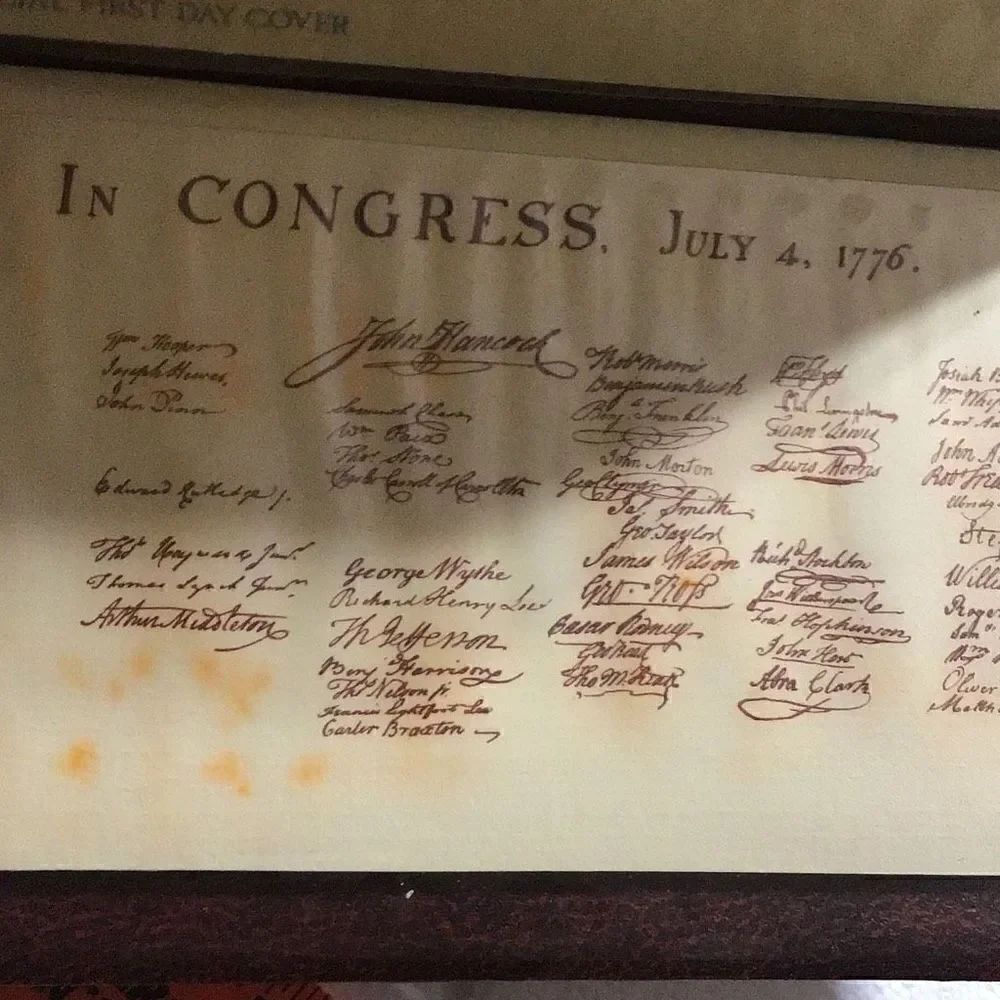 FIRST DAY COVER
IN CONGRESS. JULY 4, 1776.
Wm Hooper
Joseph Hewes,
John Penn
Edward Rutledge /.
Thos Heyward Junr.
Thomas Lynch Junr.
Arthur Middleton
John Hancock
Samuel Chase
Wm Paca
Thos Stone
Charles Carroll of Carrollton
George Wythe
Richard Henry Lee
Th Jefferson
Benj Harrison
Thos Nelson jr.
Francis Lightfoot Lee
Carter Braxton
Robt Morris
Benjamin Rush
Benj. Franklin
John Morton
Geo Clymer
Jas. Smith
Geo Taylor
James Wilson
Geo. Ross
Caesar Rodney
Geo Read
Tho M:Kean
Wm Floyd
Phil. Livingston
Frans. Lewis
Lewis Morris
Richd Stockton
Jno Witherspoon
Fras Hopkinson
John Hart
Abra Clark
Josiah B
Wm Whip
Saml Ad
John A
Robt Trea
Step
Willi
Roger
Sam
Wm
Oliver
Matth